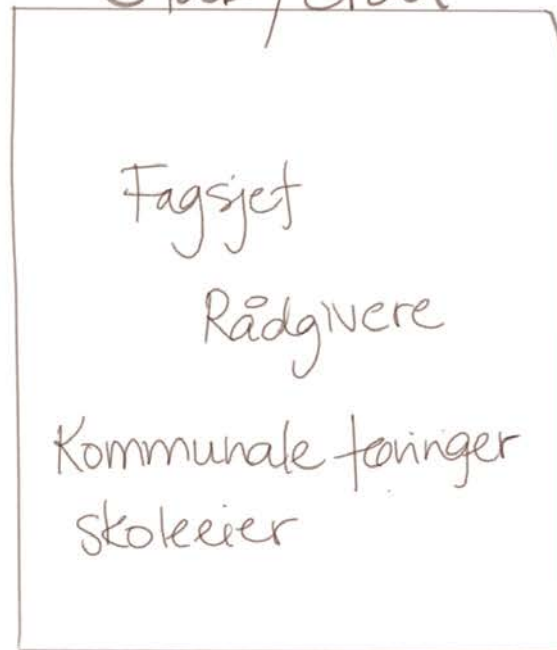 Fagsjef
Rådgivere
Kommunale føringer
skoleeier